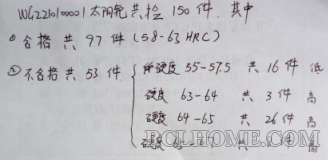 WG221010001 太阳轮 共检 150 件. 其中
① 合格 共 97 件 (58-63 HRC)
② 不合格 共 53 件
硬度 55-57.5 共 16 件 低
硬度 63-64 共 3 件 高
硬度 64-65 共 26 件 高
硬度 件 高
RCLHOME.COM